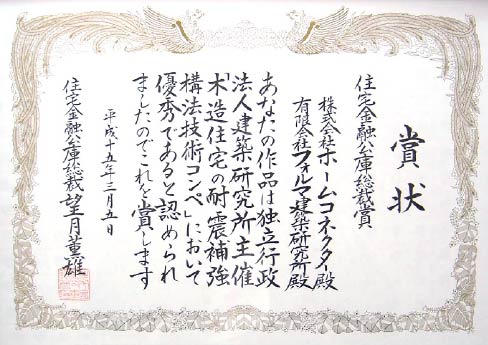 賞状
住宅金融公庫総裁賞
株式会社ホームコネクター殿
有限会社フォルマ建築研究所殿
あなたの作品は独立行政
法人建築研究所主催
「木造住宅の耐震補強
構法技術コンペ」において
優秀であると認められ
ましたのでこれを賞します
平成十五年三月五日
住宅金融公庫総裁 望月薫雄